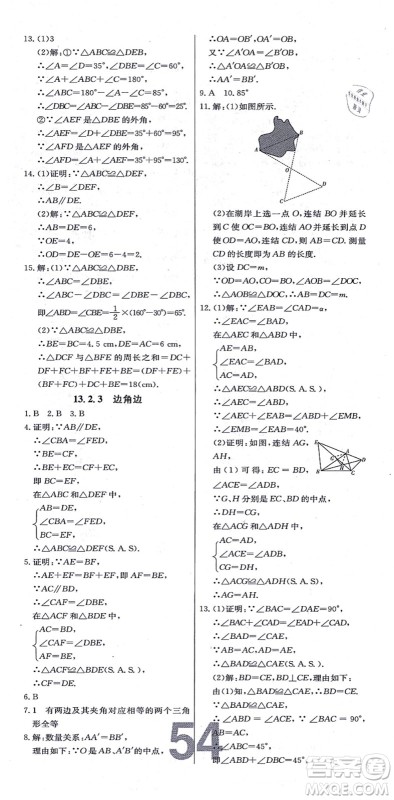 13. (1)3
(2)解:①∵△ABC≌△DEB,
∴∠A=∠D=35°,∠DBE=∠C=60°,
∵∠A+∠ABC+∠C=180°,
∴∠ABC=180°-∠A-∠C=85°,
∴∠DBC=∠ABC-∠DBE=85°-60°=25°.
②∵∠AEF是△DBE的外角,
∴∠AEF=∠D+∠DBE=35°+60°=95°,
∵∠AFD是△AEF的外角,
∴∠AFD=∠A+∠AEF=35°+95°=130°.
14. (1)证明:∵△ABC≌△DEF,
∴∠B=∠DEF,
∴AB∥DE.
(2)解:∵△ABC≌△DEF,
∴DE=AB=6,
∵OE=4,
∴OD=DE-OE=6-4=2.
15. 解:(1)∵△ABC≌△DBE,
∴∠ABC=∠DBE,
∴∠ABC-∠DBC=∠DBE-∠DBC,
即∠ABD=∠CBE=1/2×(160°-30°)=65°.
(2)∵△ABC≌△DBE,
∴BE=BC=4.5 cm,DE=AC=6 cm,
∴△DCF与△BFE的周长之和=DC+
DF+FC+BF+FE+BE=DC+DE+
BC+BE=18(cm).
13.2.3 边角边
1. B 2. B 3. B
4. 证明:∵AB∥DE,
∴∠CBA=∠FED,
∵BE=CF,
∴BE+EC=CF+EC,
即BC=EF,
在△ABC和△DEF中,
AB=DE,
∠CBA=∠FED,
BC=EF,
∴△ABC≌△DEF(S.A.S.).
5. 证明:∵AE=BF,
∴AE+EF=BF+EF,即AF=BE,
∵AC∥BD,
∴∠CAF=∠DBE,
在△ACF和△BDE中,
AC=BD,
∠CAF=∠DBE,
AF=BE,
∴△ACF≌△BDE(S.A.S.).
6. B
7. 1 有两边及其夹角对应相等的两个三角
形全等
8. 解:数量关系:AA′=BB′,
理由如下:∵O是AB′、A′B的中点,
∴OA=OB′,OA′=OB,
又∵∠A′OA=∠BOB′,
∴△A′OA≌△BOB′,
∴AA′=BB′.
9. A 10. 85°
11. 解:(1)如图所示.
A
B
O
D
C
(2)在湖岸上选一点O,连结BO并延长
到C使BO=OC,连结AO并延长到点D
使OD=AO,连结CD,则AB=CD.测量
DC的长度即为AB的长度.
(3)设DC=m,
∵OD=AO,∠COD=∠AOB,CO=BO,
∴△AOB≌△DOC(S.A.S.),
∴AB=CD=m.
12. (1)证明:∵∠EAB=∠CAD=α,
∴∠EAC=∠BAD,
在△AEC和△ABD中,
AE=AB,
∠EAC=∠BAD,
AC=AD,
∴△AEC≌△ABD(S.A.S.),
∴∠AEC=∠ABD,
∵∠AEC+∠EAB=∠ABD+∠EMB,
∴∠EMB=∠EAB=α.
(2)证明:如图,连结AG,
AH,
由(1)可得:EC=BD,
∠ACE=∠ADB,
∵G、H分别是EC、BD的中点,
∴DH=CG,
在△ACG和△ADH中,
AC=AD,
∠ACG=∠ADH,
CG=DH,
∴△ACG≌△ADH(S.A.S.),
∴AG=AH.
13. (1)证明:∵∠BAC=∠DAE=90°,
∴∠CAE=∠BAD.
∵AB=AC,AD=AE,
∴△BAD≌△CAE.
(2)解:BD=CE,BD⊥CE,理由如下:
由(1)知,△BAD≌△CAE,
∴BD=CE.
∵∠BAC=90°,AB=AC,
∴∠ABC=45°,
∴∠ACE=∠ABC=45°,
54